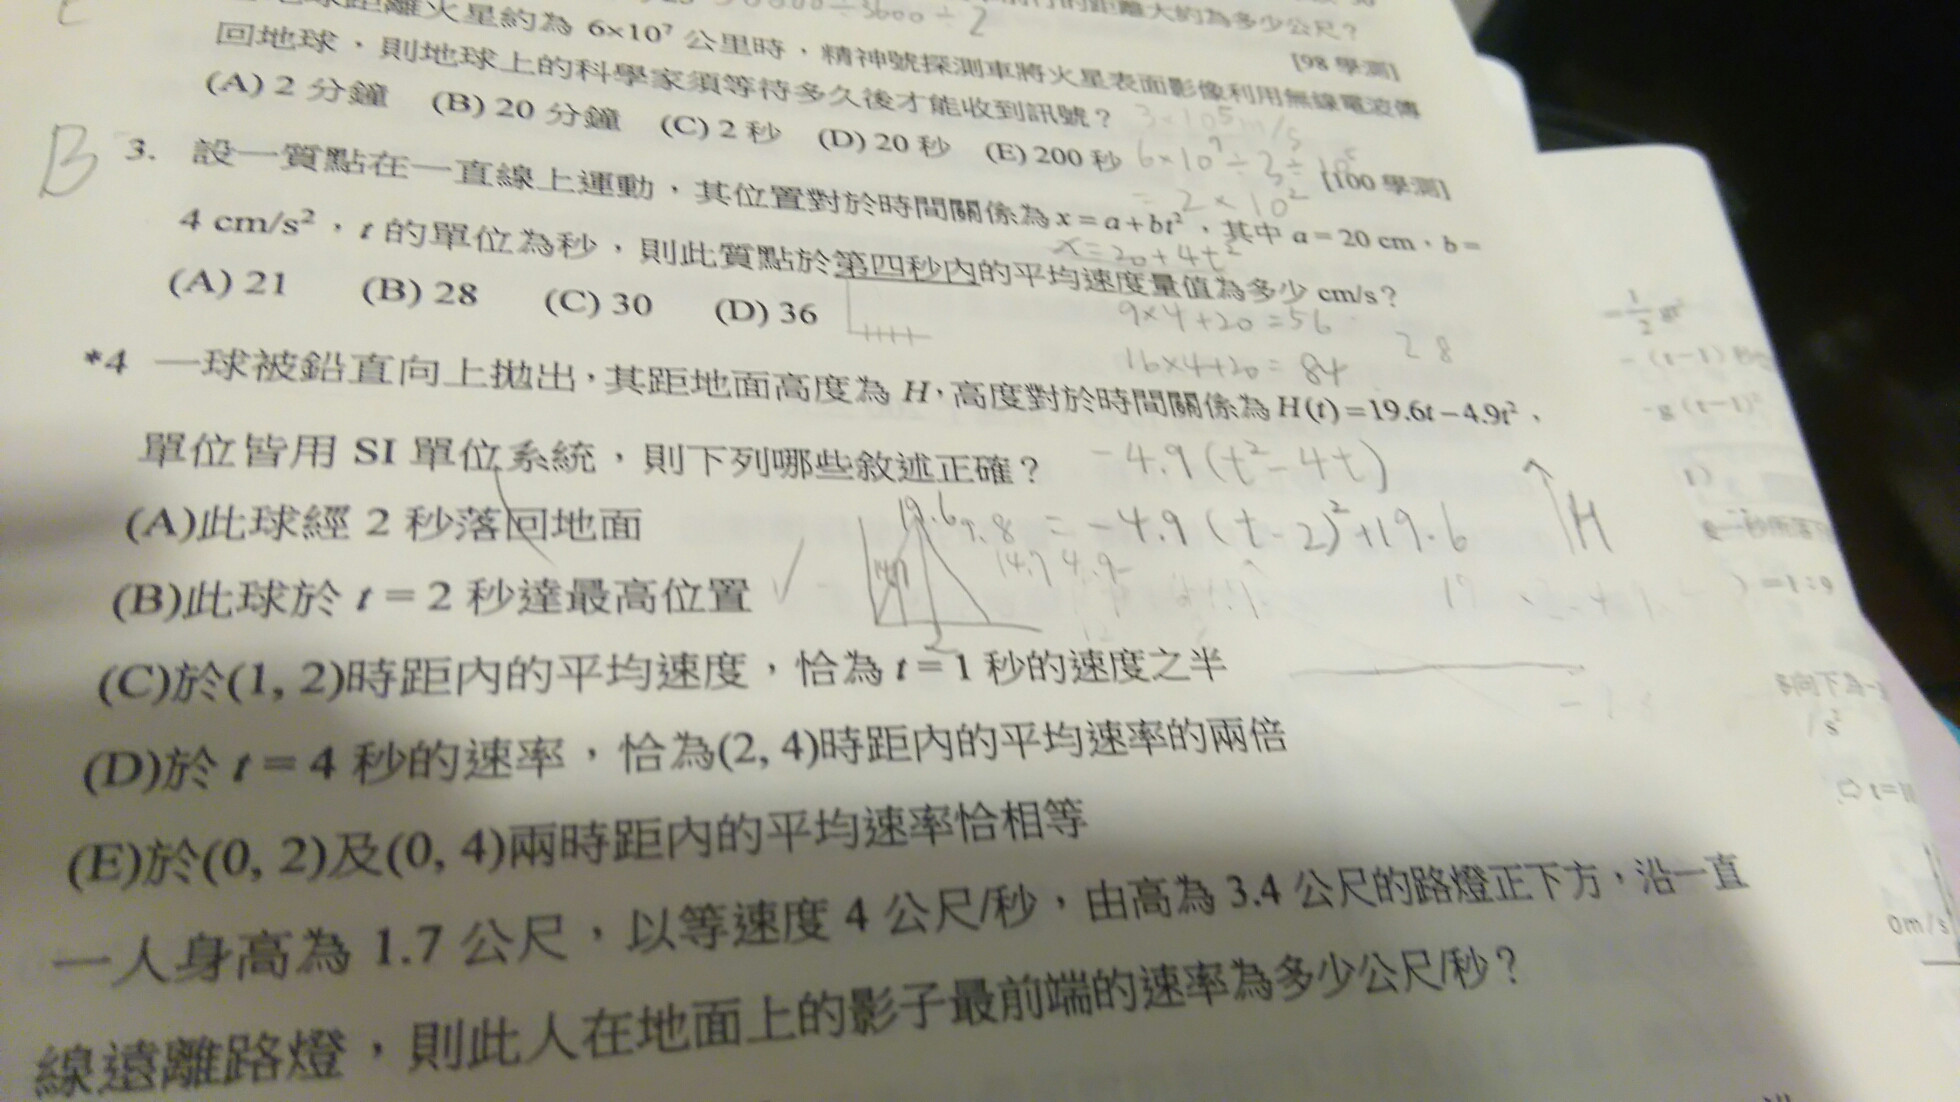 球距離火星約為 6×10⁷ 公里時，精神號探測車將火星表面影像利用無線電波傳
的距離大約為多少公尺？
[98 學測]
回地球，則地球上的科學家須等待多久後才能收到訊號？
3×10⁵ m/s
(A) 2 分鐘 (B) 20 分鐘 (C) 2 秒 (D) 20 秒 (E) 200 秒
6×10⁷÷3÷10⁵
[100 學測]
= 2×10²
B
3. 設一質點在一直線上運動，其位置對於時間關係為 x＝a＋bt²，其中 a＝20 cm，b＝
x=20+4t²
4 cm/s²，t 的單位為秒，則此質點於第四秒內的平均速度量值為多少 cm/s？
(A) 21 (B) 28 (C) 30 (D) 36
9×4+20=56
16×4+20=84
28
*4 一球被鉛直向上拋出，其距地面高度為 H，高度對於時間關係為 H(t)＝19.6t－4.9t²，
單位皆用 SI 單位系統，則下列哪些敘述正確？
-4.9(t²-4t)
(A)此球經 2 秒落回地面
19.6 9.8 = -4.9(t-2)²+19.6
H
14.7 4.9
(B)此球於 t＝2 秒達最高位置
2
(C)於(1, 2)時距內的平均速度，恰為 t＝1 秒的速度之半
(D)於 t＝4 秒的速率，恰為(2, 4)時距內的平均速率的兩倍
(E)於(0, 2)及(0, 4)兩時距內的平均速率恰相等
一人身高為 1.7 公尺，以等速度 4 公尺/秒，由高為 3.4 公尺的路燈正下方，沿一直
線遠離路燈，則此人在地面上的影子最前端的速率為多少公尺/秒？
0m/s